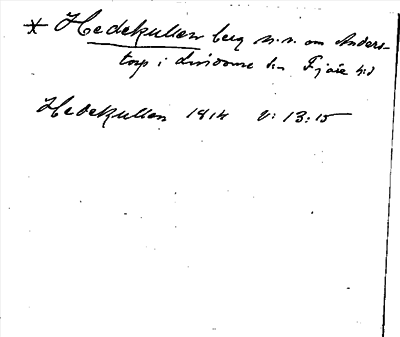 * Hedekullen berg n.v. om Anders-
torp i Fjäre hd
Hedekullen 1914 V: 13: 15